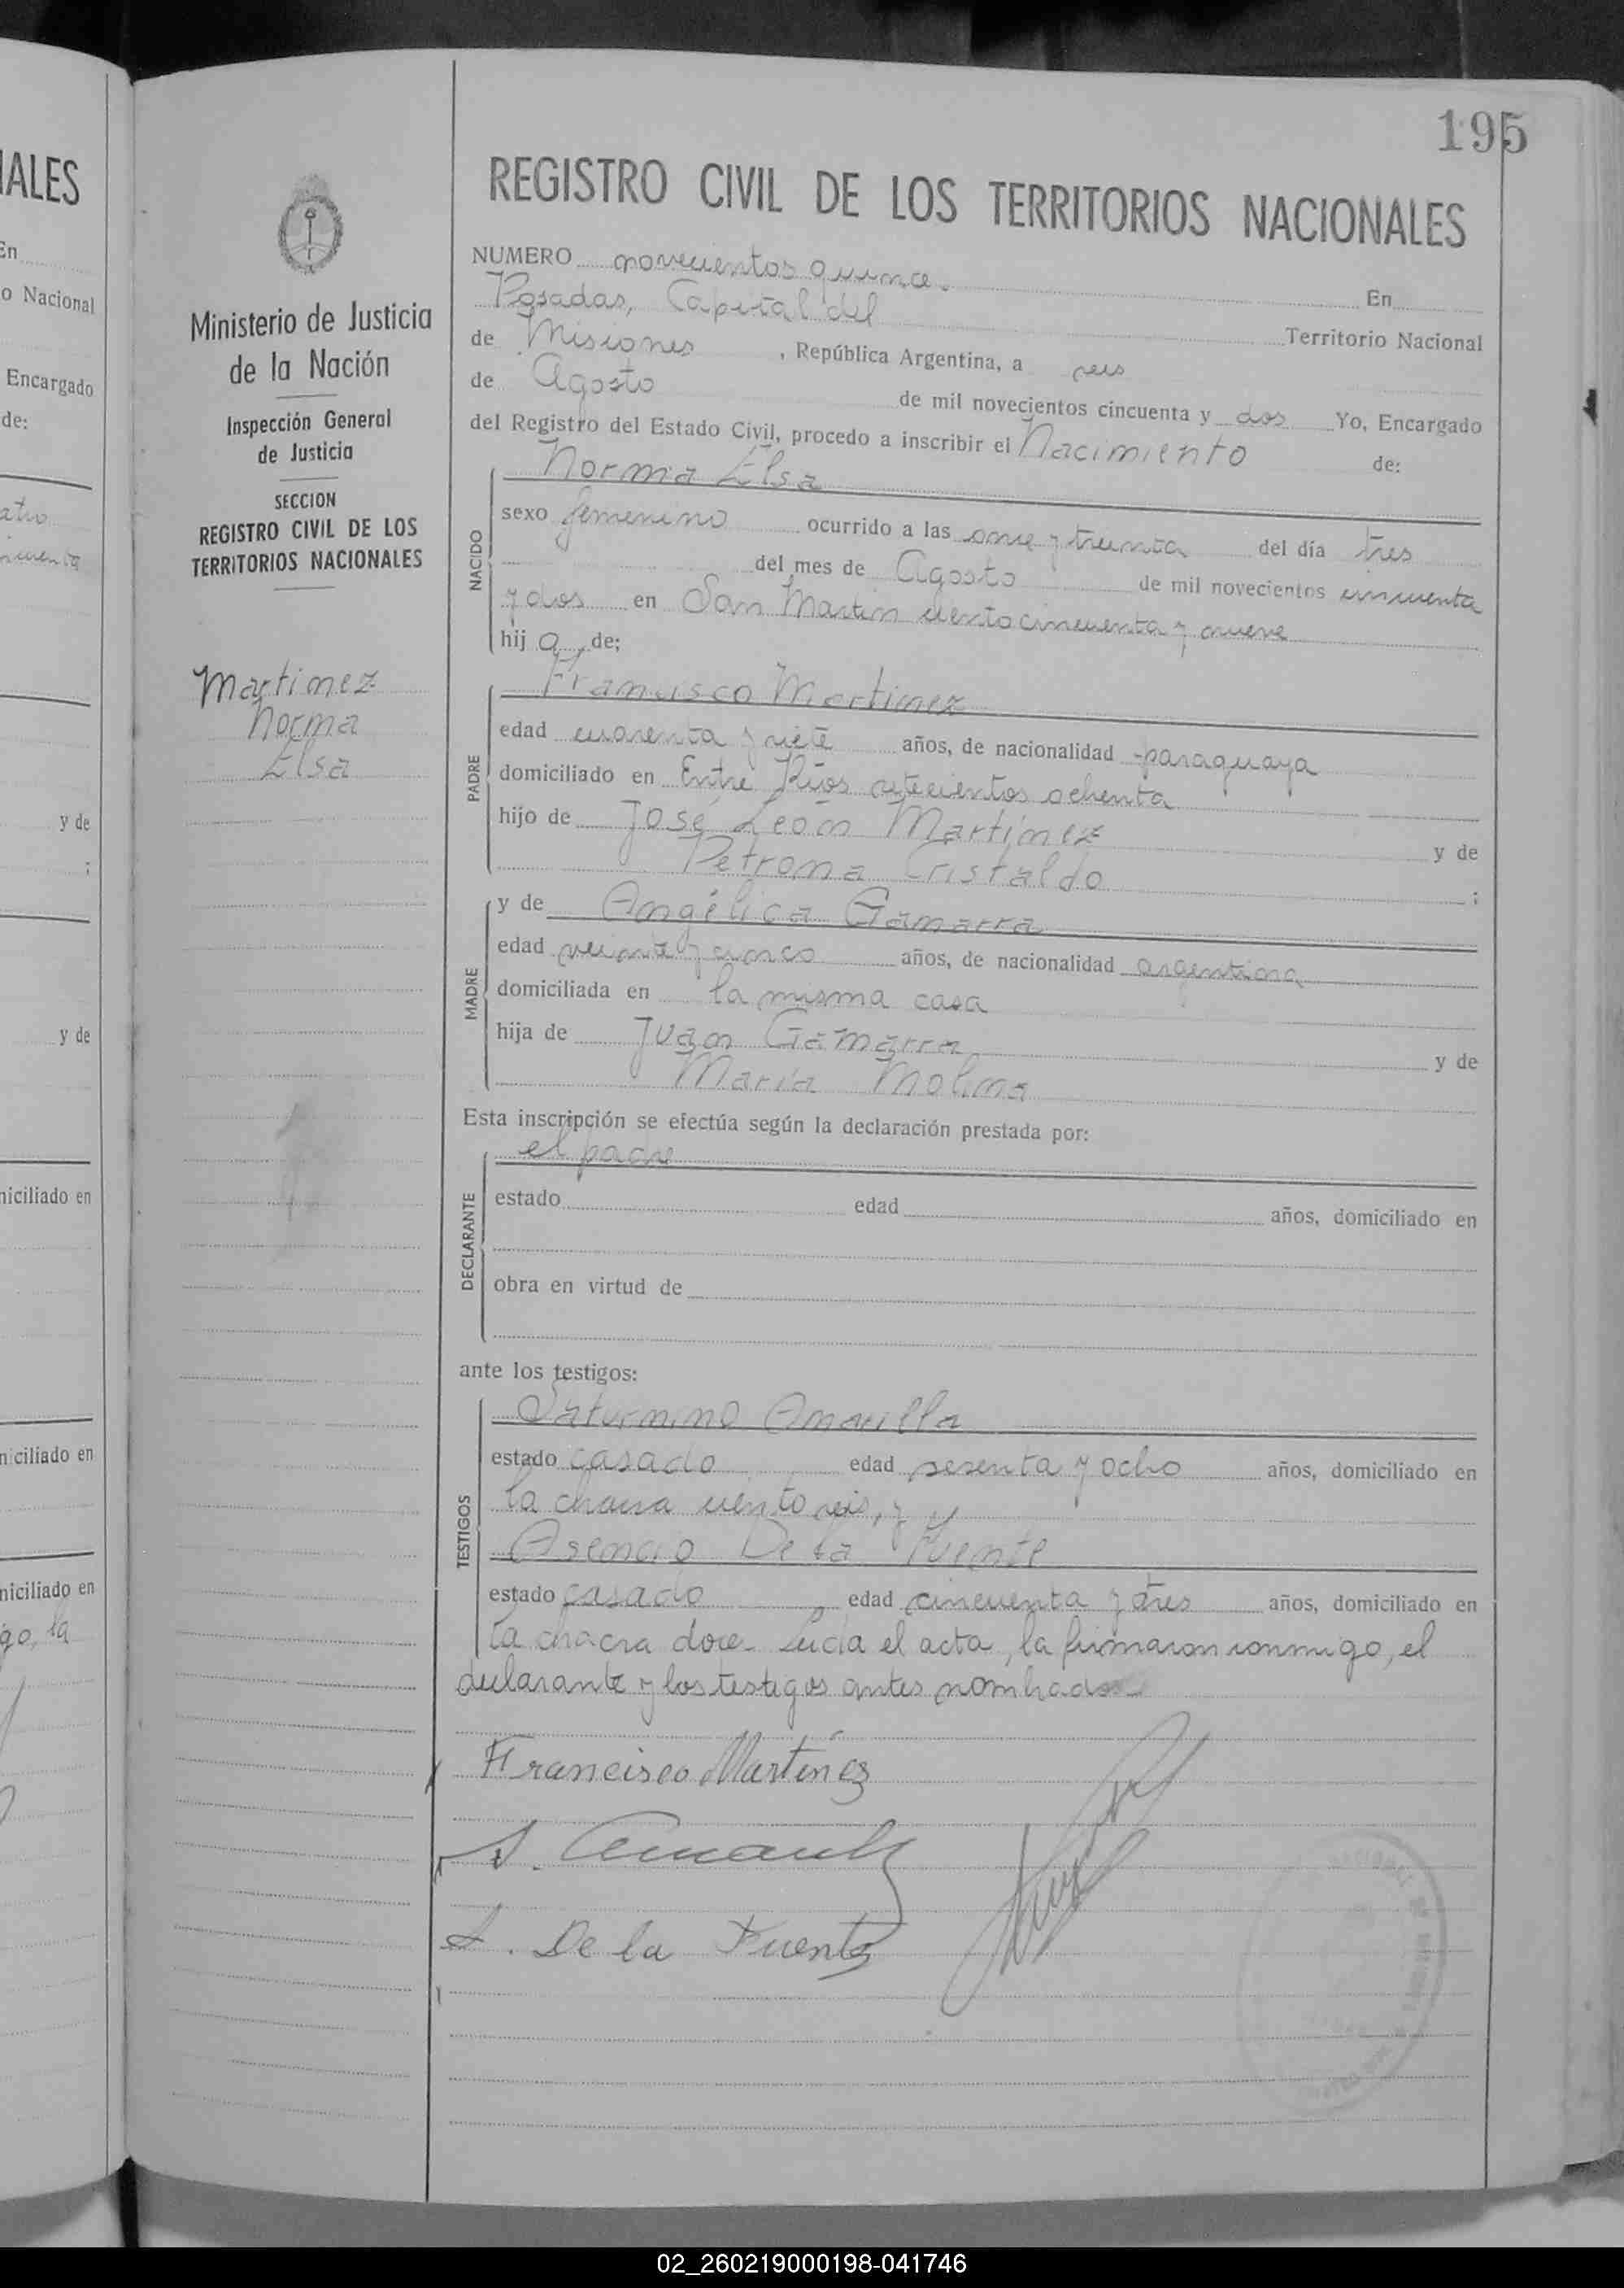 195
REGISTRO CIVIL DE LOS TERRITORIOS NACIONALES
NUMERO novecientos quince. En
Posadas, Capital del Territorio Nacional
de Misiones, República Argentina, a seis
de Agosto de mil novecientos cincuenta y dos Yo, Encargado
del Registro del Estado Civil, procedo a inscribir el Nacimiento de:
NACIDO
Norma Elsa
sexo femenino ocurrido a las once y treinta del día tres
del mes de Agosto de mil novecientos cincuenta
y dos en San Martin ciento cincuenta y nueve
hij a de;
PADRE
Francisco Martinez
edad cuarenta y siete años, de nacionalidad paraguaya
domiciliado en Entre Rios setecientos ochenta
hijo de José León Martinez y de
Petrona Cristaldo ;
MADRE
y de Angélica Gamarra
edad veinte y cinco años, de nacionalidad argentina
domiciliada en la misma casa
hija de Juan Gamarra y de
Maria Molina
Esta inscripción se efectúa según la declaración prestada por:
DECLARANTE
el padre
estado edad años, domiciliado en
obra en virtud de
ante los testigos:
TESTIGOS
Saturnino Amarilla
estado casado edad sesenta y ocho años, domiciliado en
la chacra ciento seis, y
Asencio De la Fuente
estado casado edad cincuenta y tres años, domiciliado en
la chacra doce. Leida el acta, la firmaron conmigo, el
declarante y los testigos antes nombrados
Francisco Martínez
S. Amarilla
A. De la Fuente
Ministerio de Justicia
de la Nación
Inspección General
de Justicia
SECCION
REGISTRO CIVIL DE LOS
TERRITORIOS NACIONALES
Martinez
Norma
Elsa
IALES
En
o Nacional
Encargado
de:
y de
;
y de
niciliado en
niciliado en
niciliado en
go, la
02_260219000198-041746